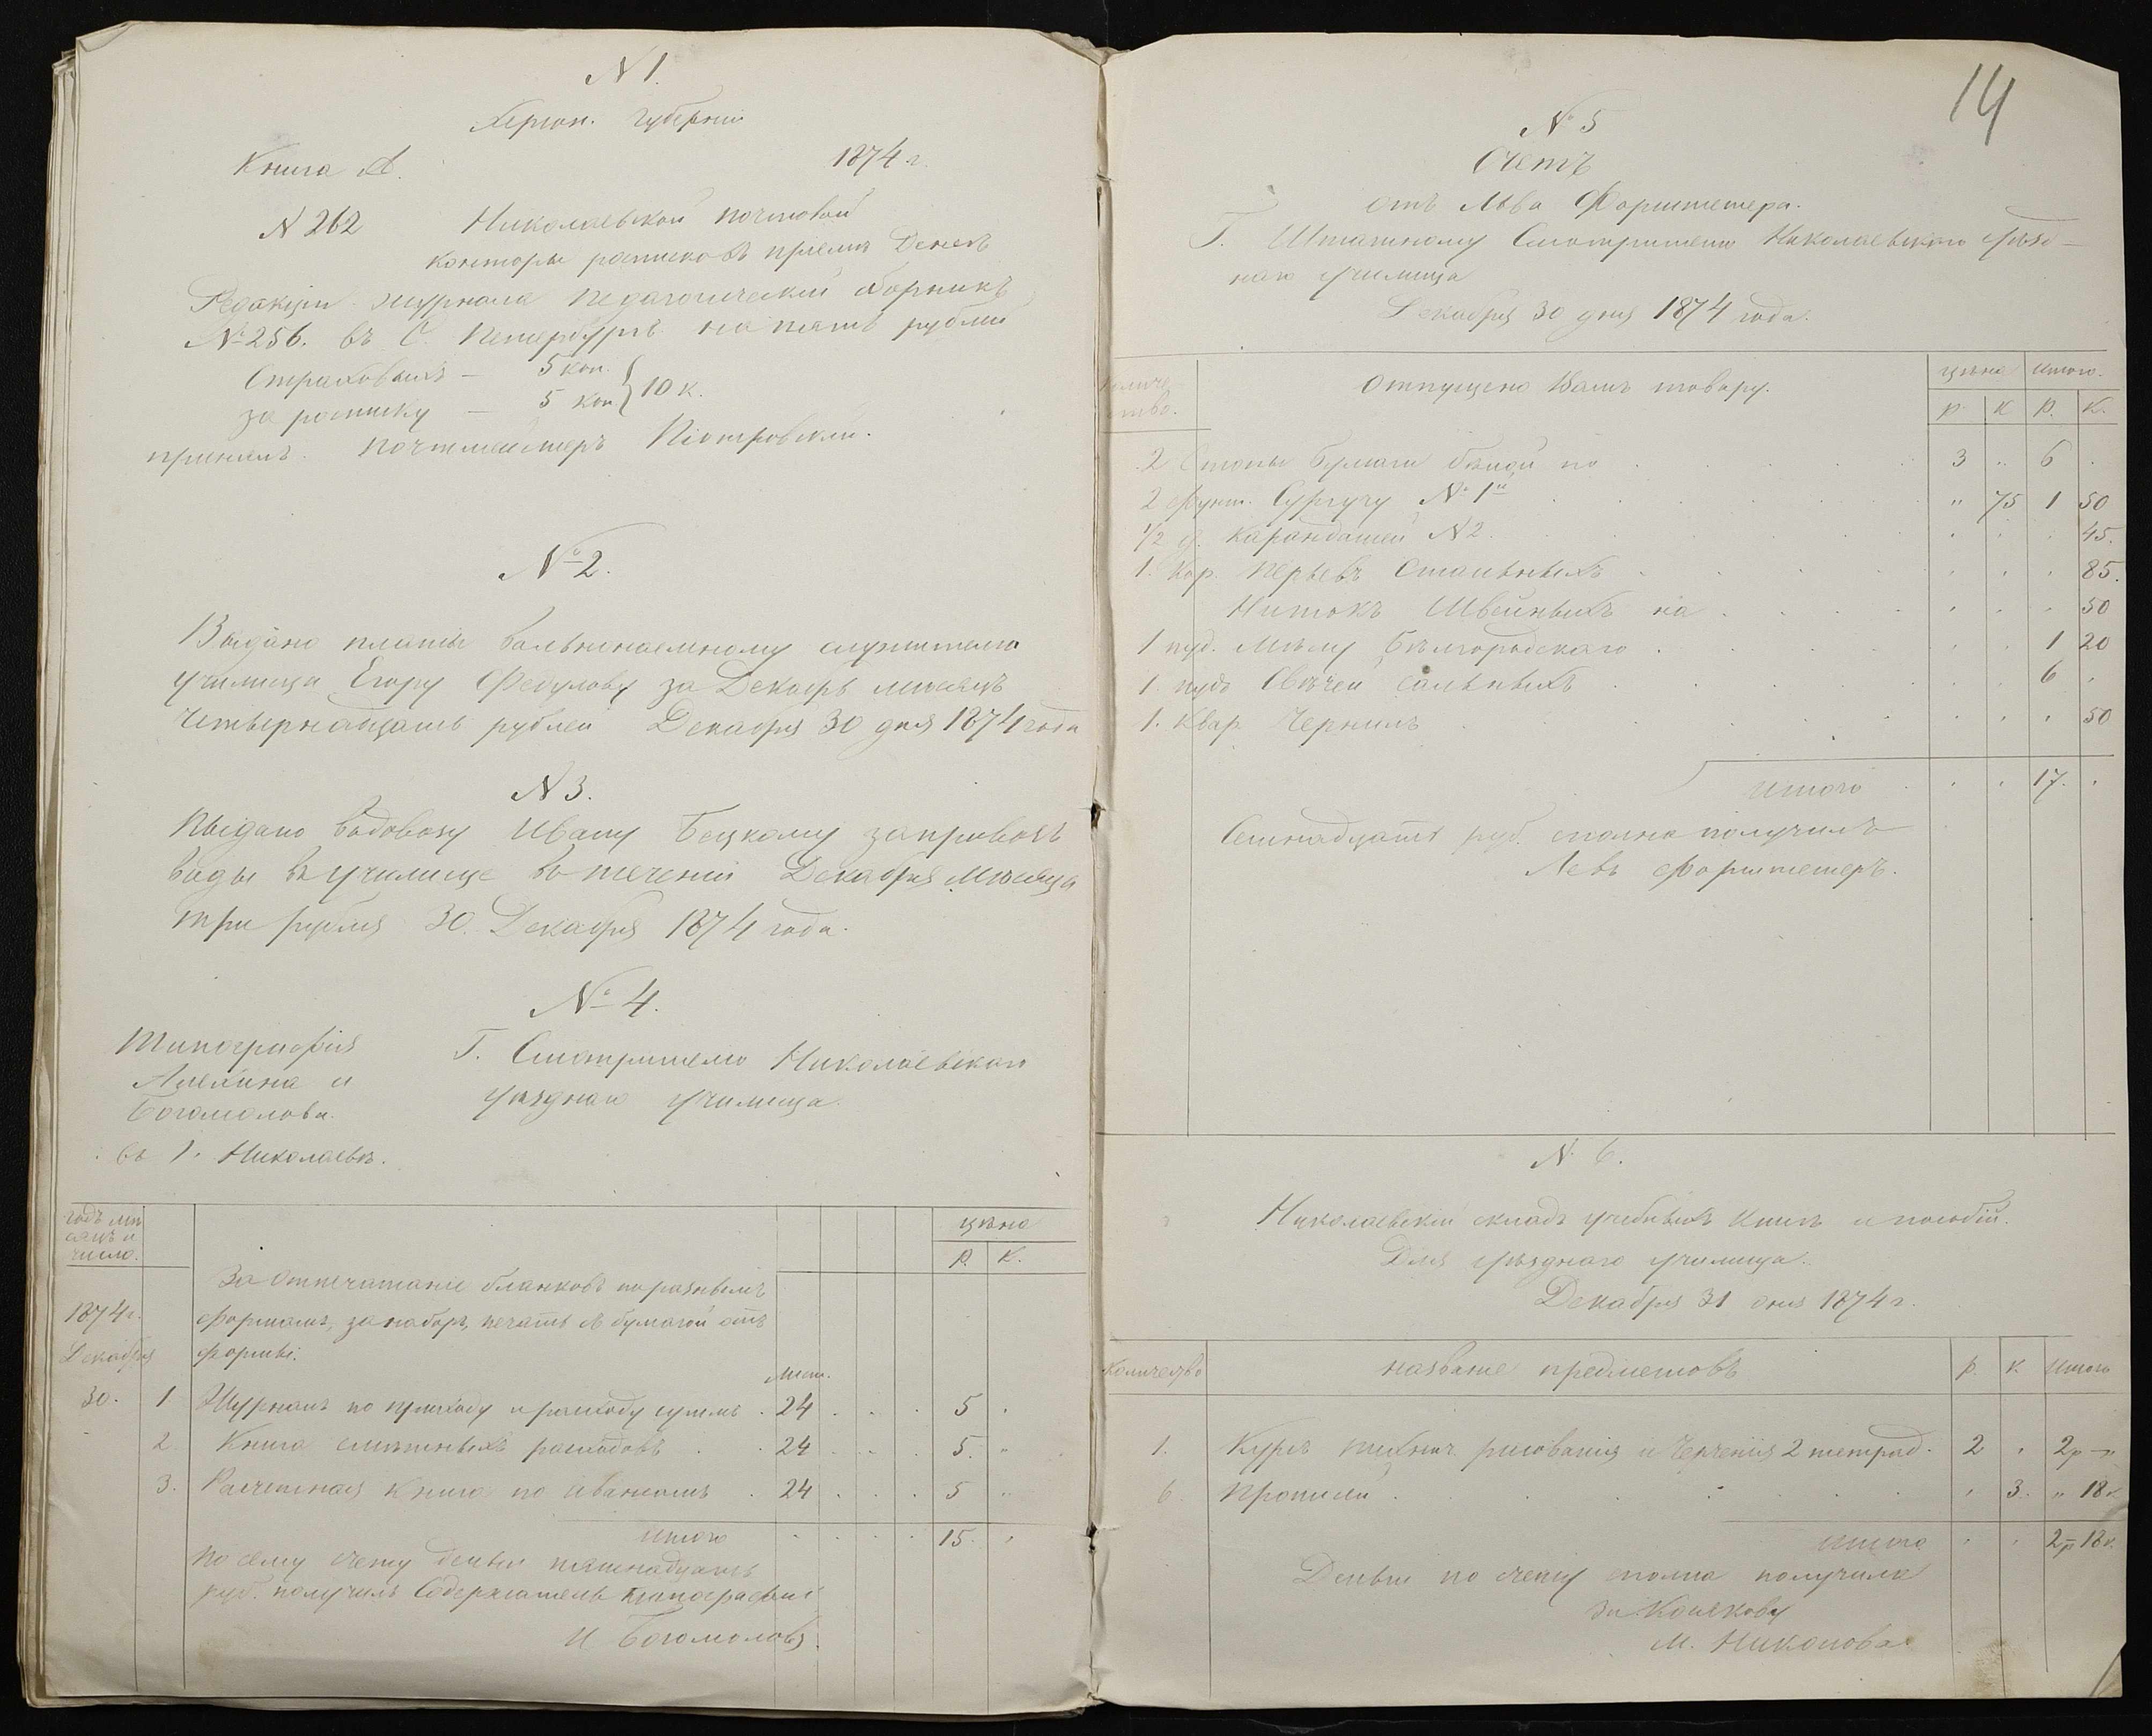 N 1.
Херсон. Губерніи
Книга А. 1874 г.
N 262 Николаевской почтовой
конторы росписка въ пріемѣ денегъ
Редакціи журнала Педагогическій сборникъ
№ 256. въ С. Петербургъ на пять рублей
Страховыхъ — 5 коп.
за росписку — 5 коп. } 10 к.
принялъ. Почтмейстеръ Піотровскій.
№ 2.
Выдано платы вольнонаемному служителю
училища Егору Федулову за Декабрь мѣсяцъ
четырнадцать рублей Декабря 30 дня 1874 года
N 3.
Выдано водовозу Ивану Бецкому за привозъ
воды въ училище въ теченіи Декабря мѣсяца
три рубля 30 Декабря 1874 года.
№ 4.
Типографія
и
Богомолова.
въ Г. Николаевѣ.
Г. Смотрителю Николаевскаго
уѣзднаго училища.
годъ мѣ
сяцъ и
число.
цѣна
Р. К.
За отпечатаніе бланковъ по разнымъ
1874 г. формамъ, за наборъ, печать съ бумагой отъ
Декабря формы.
лист.
30. 1 Журналъ по приходу и расходу суммъ . 24 . . . 5 .
2. Книга смѣтныхъ расходовъ . . 24 . . . 5. "
3. Расчетная книга по . 24 . . . 5 "
итого . . . . 15. "
По сему счету деньги пятнадцать
руб. получилъ Содержатель типографіи
И Богомоловъ.
14
№ 5
Счетъ
отъ Льва Форштетера.
Г. Штатному Смотрителю Николаевскаго уѣзд—
наго училища
Декабря 30 дня 1874 года.
Количе
ство.
Отпущено Вамъ товару.
цѣна итого.
Р. К Р. К.
2 Стопы бумаги бѣлой по . . . 3 " 6 .
2 Фунт. Сургучу № 1й . . . " 75 1 50
1/2 д. Карандашей N 2. . . . 45.
1. Кор. Перьевъ Стальныхъ . . . 85.
Нитокъ Швейныхъ на . . . 50
1 пуд. Мѣлу Бѣлгородскаго . . . 1 20
1. пудъ Свѣчей сальныхъ . . . 6 .
1. Квар Чернилъ . . . 50
итого . . 17. .
Семнадцать руб. сполна получилъ
Левъ Форштетеръ.
N. 6.
Николаевскій складъ учебныхъ книгъ и пособій.
Для уѣзднаго училища.
Декабря 31 дня 1874 г.
Количество названіе предметовъ Р. К Итого
1. Курсъ технич. рисованія и черченія 2 тетрад. 2 . 2 р —
6. Прописи . . . " 3. " 18 к
итого . . 2 р 18 к.
Деньги по счету сполна получила
за
М. Никонова